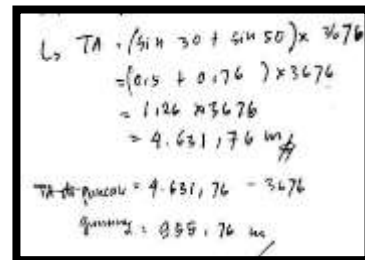 ↳ TA = (sin 30 + sin 50) × 3676
= (0,5 + 0,76) × 3676
= 1,26 × 3676
= 4.631,76 m
TA puncak = 4.631,76 - 3676
gunung = 955,76 m